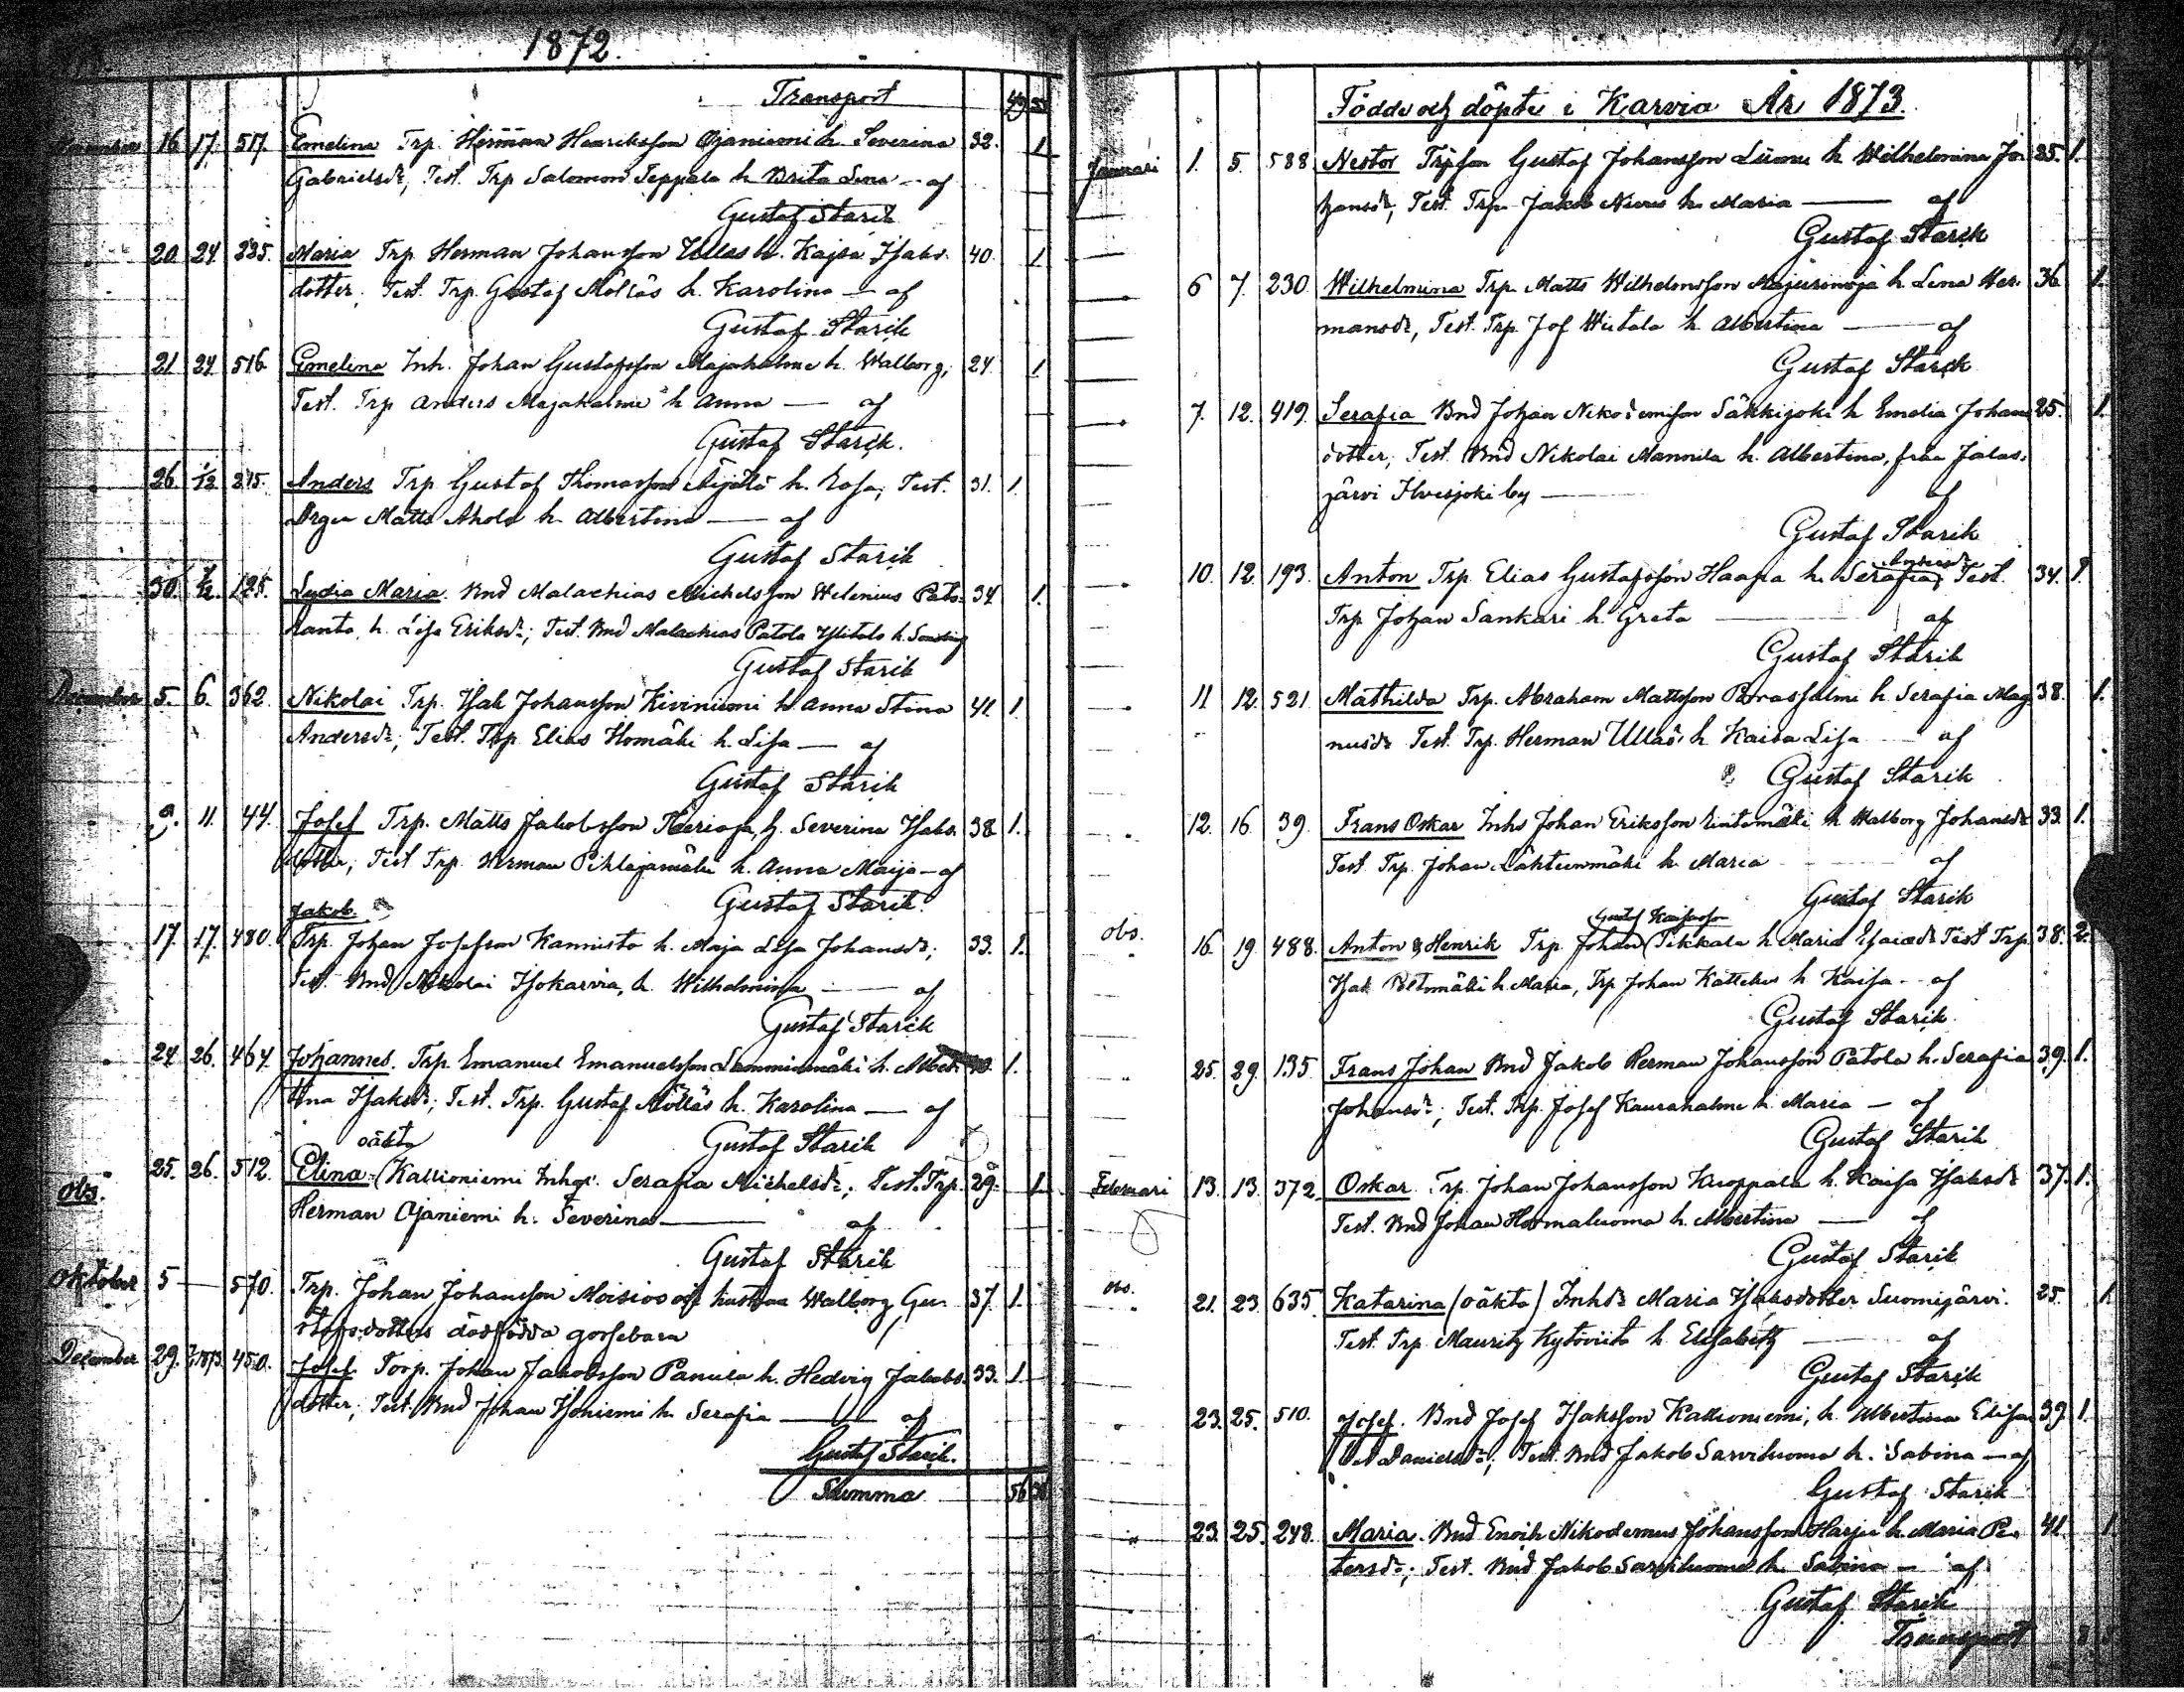 1872.
Transport 49
November 16 17. 517. Emelina Trp. Herman Henriksson Ojaniemi h. Severina 32. 1
Gabrielsdr, Test. Trp Salomon Seppälä h Brita Lena – af
Gustaf Starck
20 24 235. Maria Trp. Herman Johansson Ullas h. Kajsa Isaks- 40. 1
dotter, Test. Trp. Gustaf h. Karolina — af
Gustaf Starck
21 24 516 Emelina Inh. Johan Gustafsson Majakalme h. Walborg, 24. 1
Test. Trp Anders Majakalme h Anna — af
Gustaf Starck.
26 1/12 215. Anders Trp Gustaf Thomasson h. Rosa; Test. 31. 1.
Matts Ahola h Albertina — af
Gustaf Starck
30. 1/12. 125. Lydia Maria. Bnd Malachias Michelsson Welenius Pato- 34 1.
ranta, h. Lisa Eriksdr; Test. Bnd Malachias Patola h.
Gustaf Starck
December 5. 6. 362. Nikolai Trp. Isak Johansson Kiviniemi h Anna Stina 41 1.
Andersdr; Test. Trp. Elias h. Lisa — af
Gustaf Starck
9. 11. 44. Josef Trp. Matts Jakobsson h. Severina Isaks- 38 1.
dotter; Test Trp. Herman Pihlajamäki h. Anna Maija – af
Gustaf Starck.
Jakob.
17. 17. 480. Trp. Johan Josefsson Kannisto h. Maja Lisa Johansdr; 33. 1.
Test. Bnd Nikolai Isokarvia, h. Wilhelmina — af
Gustaf Starck
24. 26. 464. Johannes. Trp. Emanuel Emanuelsson Lamminmäki h. Alber- 1.
tina Isaksdr; Test. Trp. Gustaf h. Karolina — af
oäkta Gustaf Starck
obs. 25. 26. 512. Elina (Kallioniemi Inhys. Serafia Michelsdr; Test. Trp. 29. 1.
Herman Ojaniemi h. Severina — af
Gustaf Starck
Oktober 5 — 570. Trp. Johan Johansson Moisios och hustrun Walborg Gu- 37. 1.
stafsdotters dödfödda gossebarn
December 29. 1873. 450. Josef Torp. Johan Jakobsson Panula h. Hedvig Jakobs- 33. 1.
dotter; Test. Bnd Johan h. Serafia — af
Gustaf Starck.
Summa 56
Födde och döpte i Karvia År 1873.
Januari 1. 5. 588 Nestor Gustaf Johansson Luoma h Wilhelmina Jo- 35. 1.
hansdr, Test. Trp. Jakob h. Maria — af
Gustaf Starck
6 7. 230 Wilhelmina Trp. Matts Wilhelmsson h. Lena Her- 36 1.
mansdr, Test. Trp Jos Wiitala h. Albertina — af
Gustaf Starck
7. 12. 419. Serafia Bnd Johan Nikodemisson Särkijoki h Emelia Johans 25. 1.
dotter, Test. Bnd Nikolai Mannila h. Albertina, från Jalas-
järvi Ilvesjoki by — af
Gustaf Starck
Andersdr
10. 12. 193. Anton Trp. Elias Gustafsson Haapa h. Serafia; Test. 34. 1.
Trp Johan Sankari h. Greta — af
Gustaf Starck
11 12. 521 Mathilda Trp. Abraham Mattsson h. Serafia Mag 38. 1.
nusdr Test. Trp. Herman Ullas h Kaisa Lisa — af
Gustaf Starck
12. 16. 39. Frans Oskar Inhs Johan Eriksson Rintamäki h Walborg Johansdr 33. 1.
Test. Trp. Johan Lähteenmäki h Maria — af
Gustaf Starck
obs. Gustaf
16. 19. 488. Anton & Henrik Trp. Johan (Tikkala h Maria Test Trp 38. 2.
Isak h. Maria, Trp Johan h Kaisa – af
Gustaf Starck
25. 29. 135. Frans Johan Bnd Jakob Herman Johansson Patola h. Serafia 39. 1.
Johansdr; Test. Trp. Josef h Maria — af
Gustaf Starck
Februari 13. 13. 372. Oskar Trp. Johan Johansson Knuppala h. Kaisa Isaksdr 37. 1.
Test. Bnd Johan Hormaluoma h. Albertina — af
Gustaf Starck
obs.
21. 23. 635. Katarina (oäkta) Inhdr Maria Isaksdotter Suomijärvi. 25. 1.
Test. Trp Mauritz Kytöviita h. Elisabeth — af
Gustaf Starck
23. 25. 510. Josef. Bnd Josef Isaksson Kallioniemi, h. Albertina Elisa 39. 1.
bet Danielsdr; Test. Bnd Jakob Sarviluoma h. Sabina — af
Gustaf Starck
23. 25. 248. Maria. Bnd Enoch Nikodemus Johansson Harju h. Maria Pe- 41. 1
tersdr; Test. Bnd Jakob Sarviluoma h. Sabina — af
Gustaf Starck
Transport